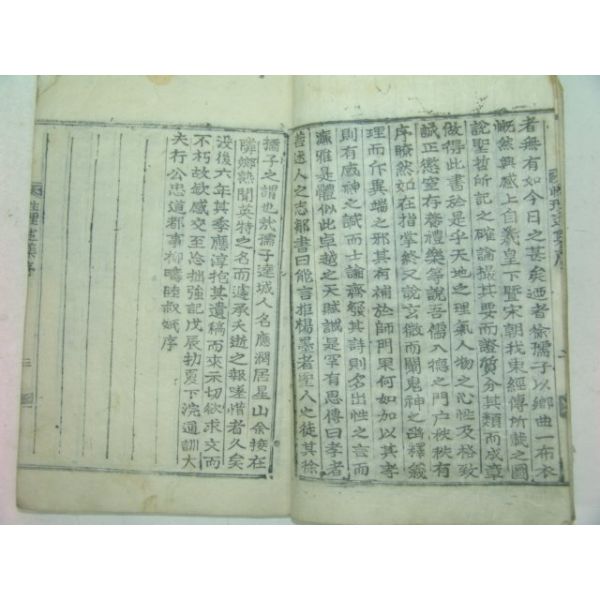 者無有如今日之甚矣迺者徐孺子以鄉曲一布衣
慨然興感上自羲皇下曁宋朝我東經傳所載之圖
說聖哲所記之確論撮其要而證質分其類而成章
做得此書於是乎天地之理氣人物之心性及格致
誠正懲窒存養禮樂等說吾儒入德之門戶秩秩有
序瞭然如在指掌終又說玄微而闢鬼神之幽釋
理而斥異端之邪其有補於師門果何如加以其孝
則有感神之誠而士論齊發其詩則名出性之言而
濂雅是體似此卓越之天賦誠是罕有思傳曰孝者
善述人之志鄒書曰能言拒楊墨者聖人之徒其徐
孺子之謂也哉孺子達城人名應潤居星山余接在
隣鄉熟聞英特之名而遽承夭逝之報唾惜者久矣
没後六年其季應淳抱其遺稿而來示切欲求文而
不朽故敏感交至忘拙強記戊辰初夏下浣通訓大
夫行公忠道都事柳疇睦叔娬序
性理彙集序